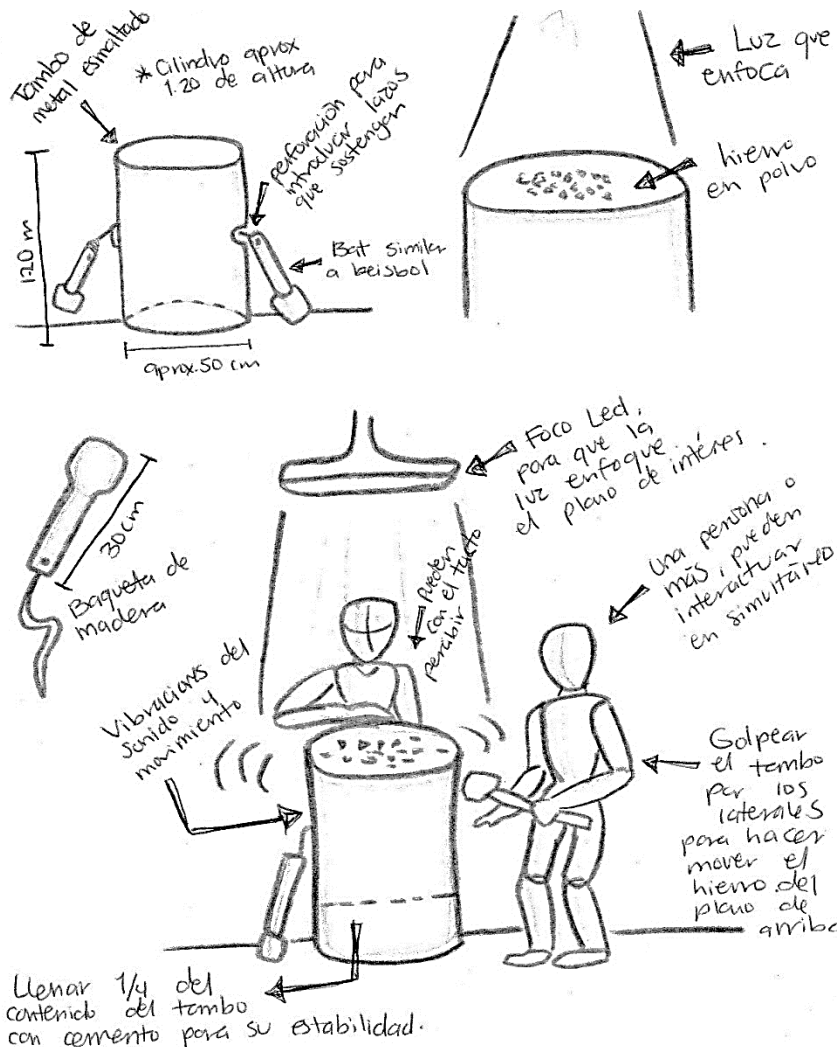 Tambo de
metal esmaltado
* Cilindro aprox
1.20 de altura
perforación para
introducir lazos
que sostengan
Bat similar
a beisbol
1.20 m
aprox. 50 cm
Luz que
enfoca
hierro
en polvo
30 cm
Baqueta de
madera
Foco Led,
para que la
luz enfoque
el plano de interés.
Pueden
con el tacto
percibir
Una persona o
más, pueden
interactuar
en simultáneo
Vibraciones del
sonido y
movimiento
Golpear
el tambo
por los
laterales
para hacer
mover el
hierro del
plano de
arriba
Llenar 1/4 del
contenido del tambo
con cemento para su estabilidad.